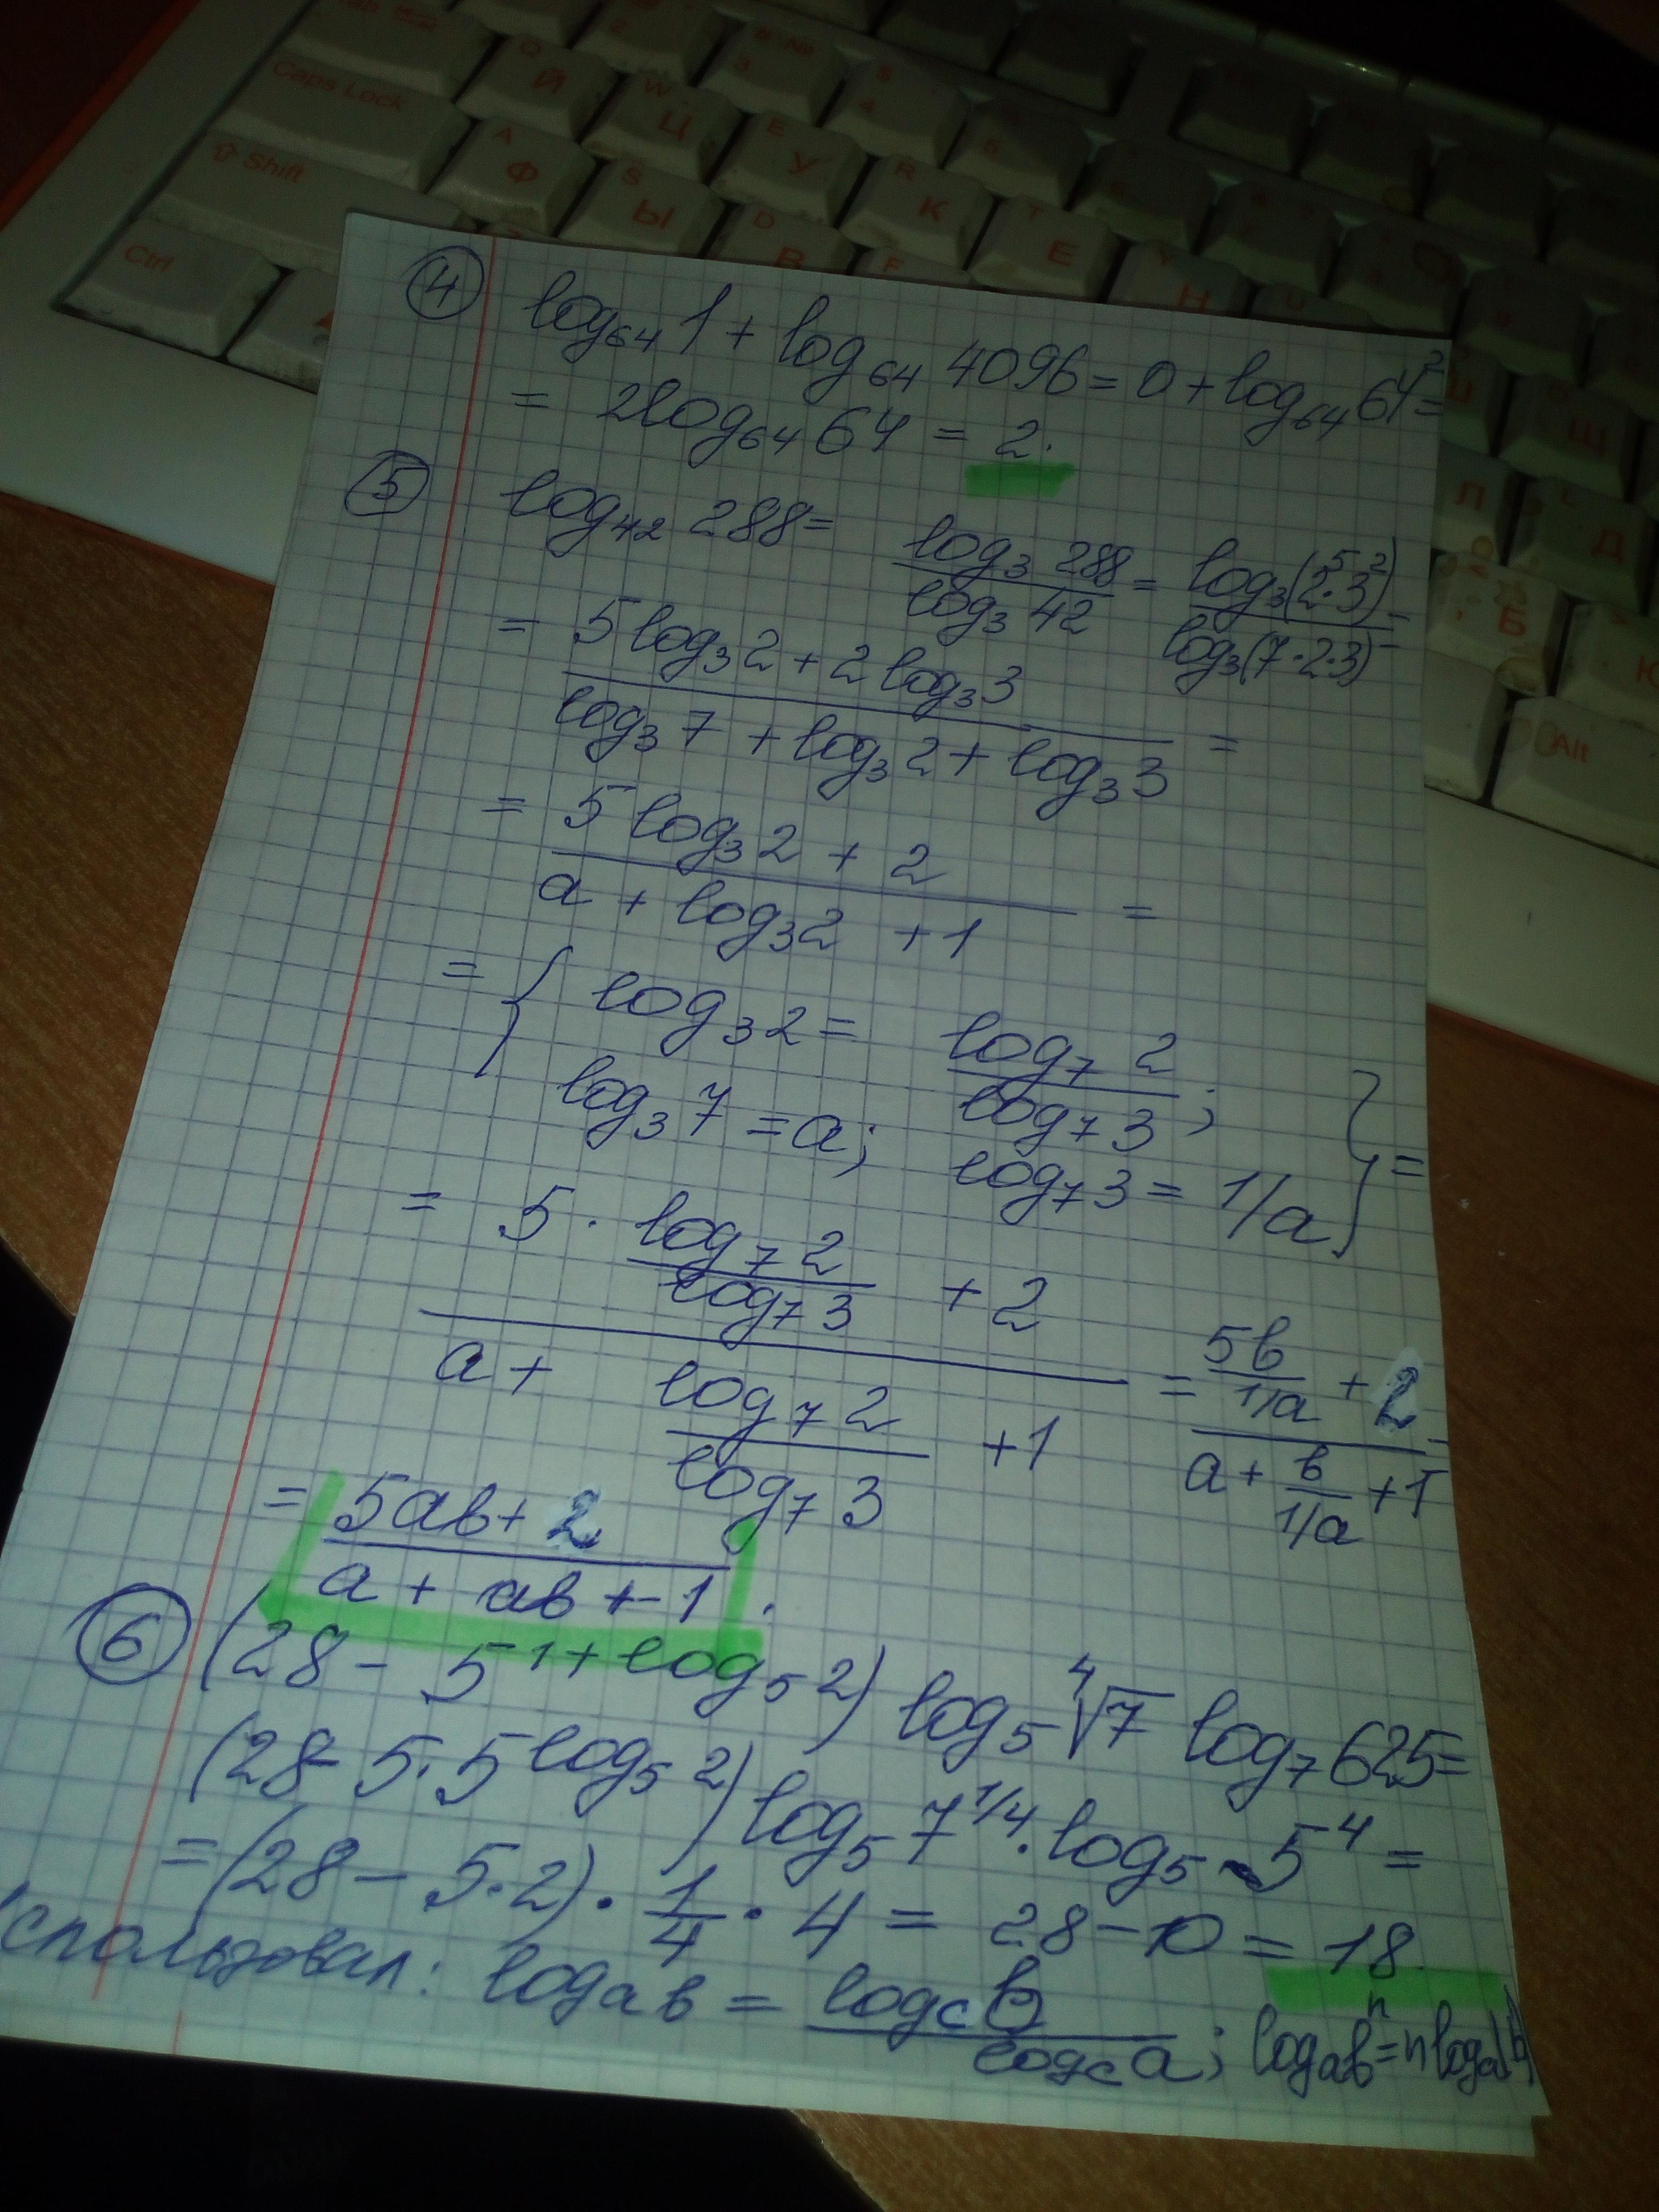 Caps Lock
Shift
Ctrl
Alt
④ log₆₄ 1 + log₆₄ 4096 = 0 + log₆₄ 64² =
= 2log₆₄ 64 = 2.
⑤ log₄₂ 288 = (log₃ 288)/(log₃ 42) = (log₃(2⁵·3²))/(log₃(7·2·3)) =
= (5 log₃ 2 + 2 log₃ 3)/(log₃ 7 + log₃ 2 + log₃ 3) =
= (5 log₃ 2 + 2)/(a + log₃ 2 + 1) =
= { log₃ 2 = (log₇ 2)/(log₇ 3);
log₃ 7 = a; log₇ 3 = 1/a } =
= (5 · (log₇ 2)/(log₇ 3) + 2)/(a + (log₇ 2)/(log₇ 3) + 1) = (5b/(1/a) + 2)/(a + b/(1/a) + 1)
= (5ab + 2)/(a + ab + 1).
⑥ (28 - 5^(1 + log₅ 2)) log₅ ⁴√7 log₇ 625 =
(28 - 5·5^(log₅ 2)) log₅ 7^(1/4) · log₅ 5⁴ =
= (28 - 5·2) · 1/4 · 4 = 28 - 10 = 18.
спользовал: logₐ b = (log_c b)/(log_c a); logₐ bⁿ = n logₐ b